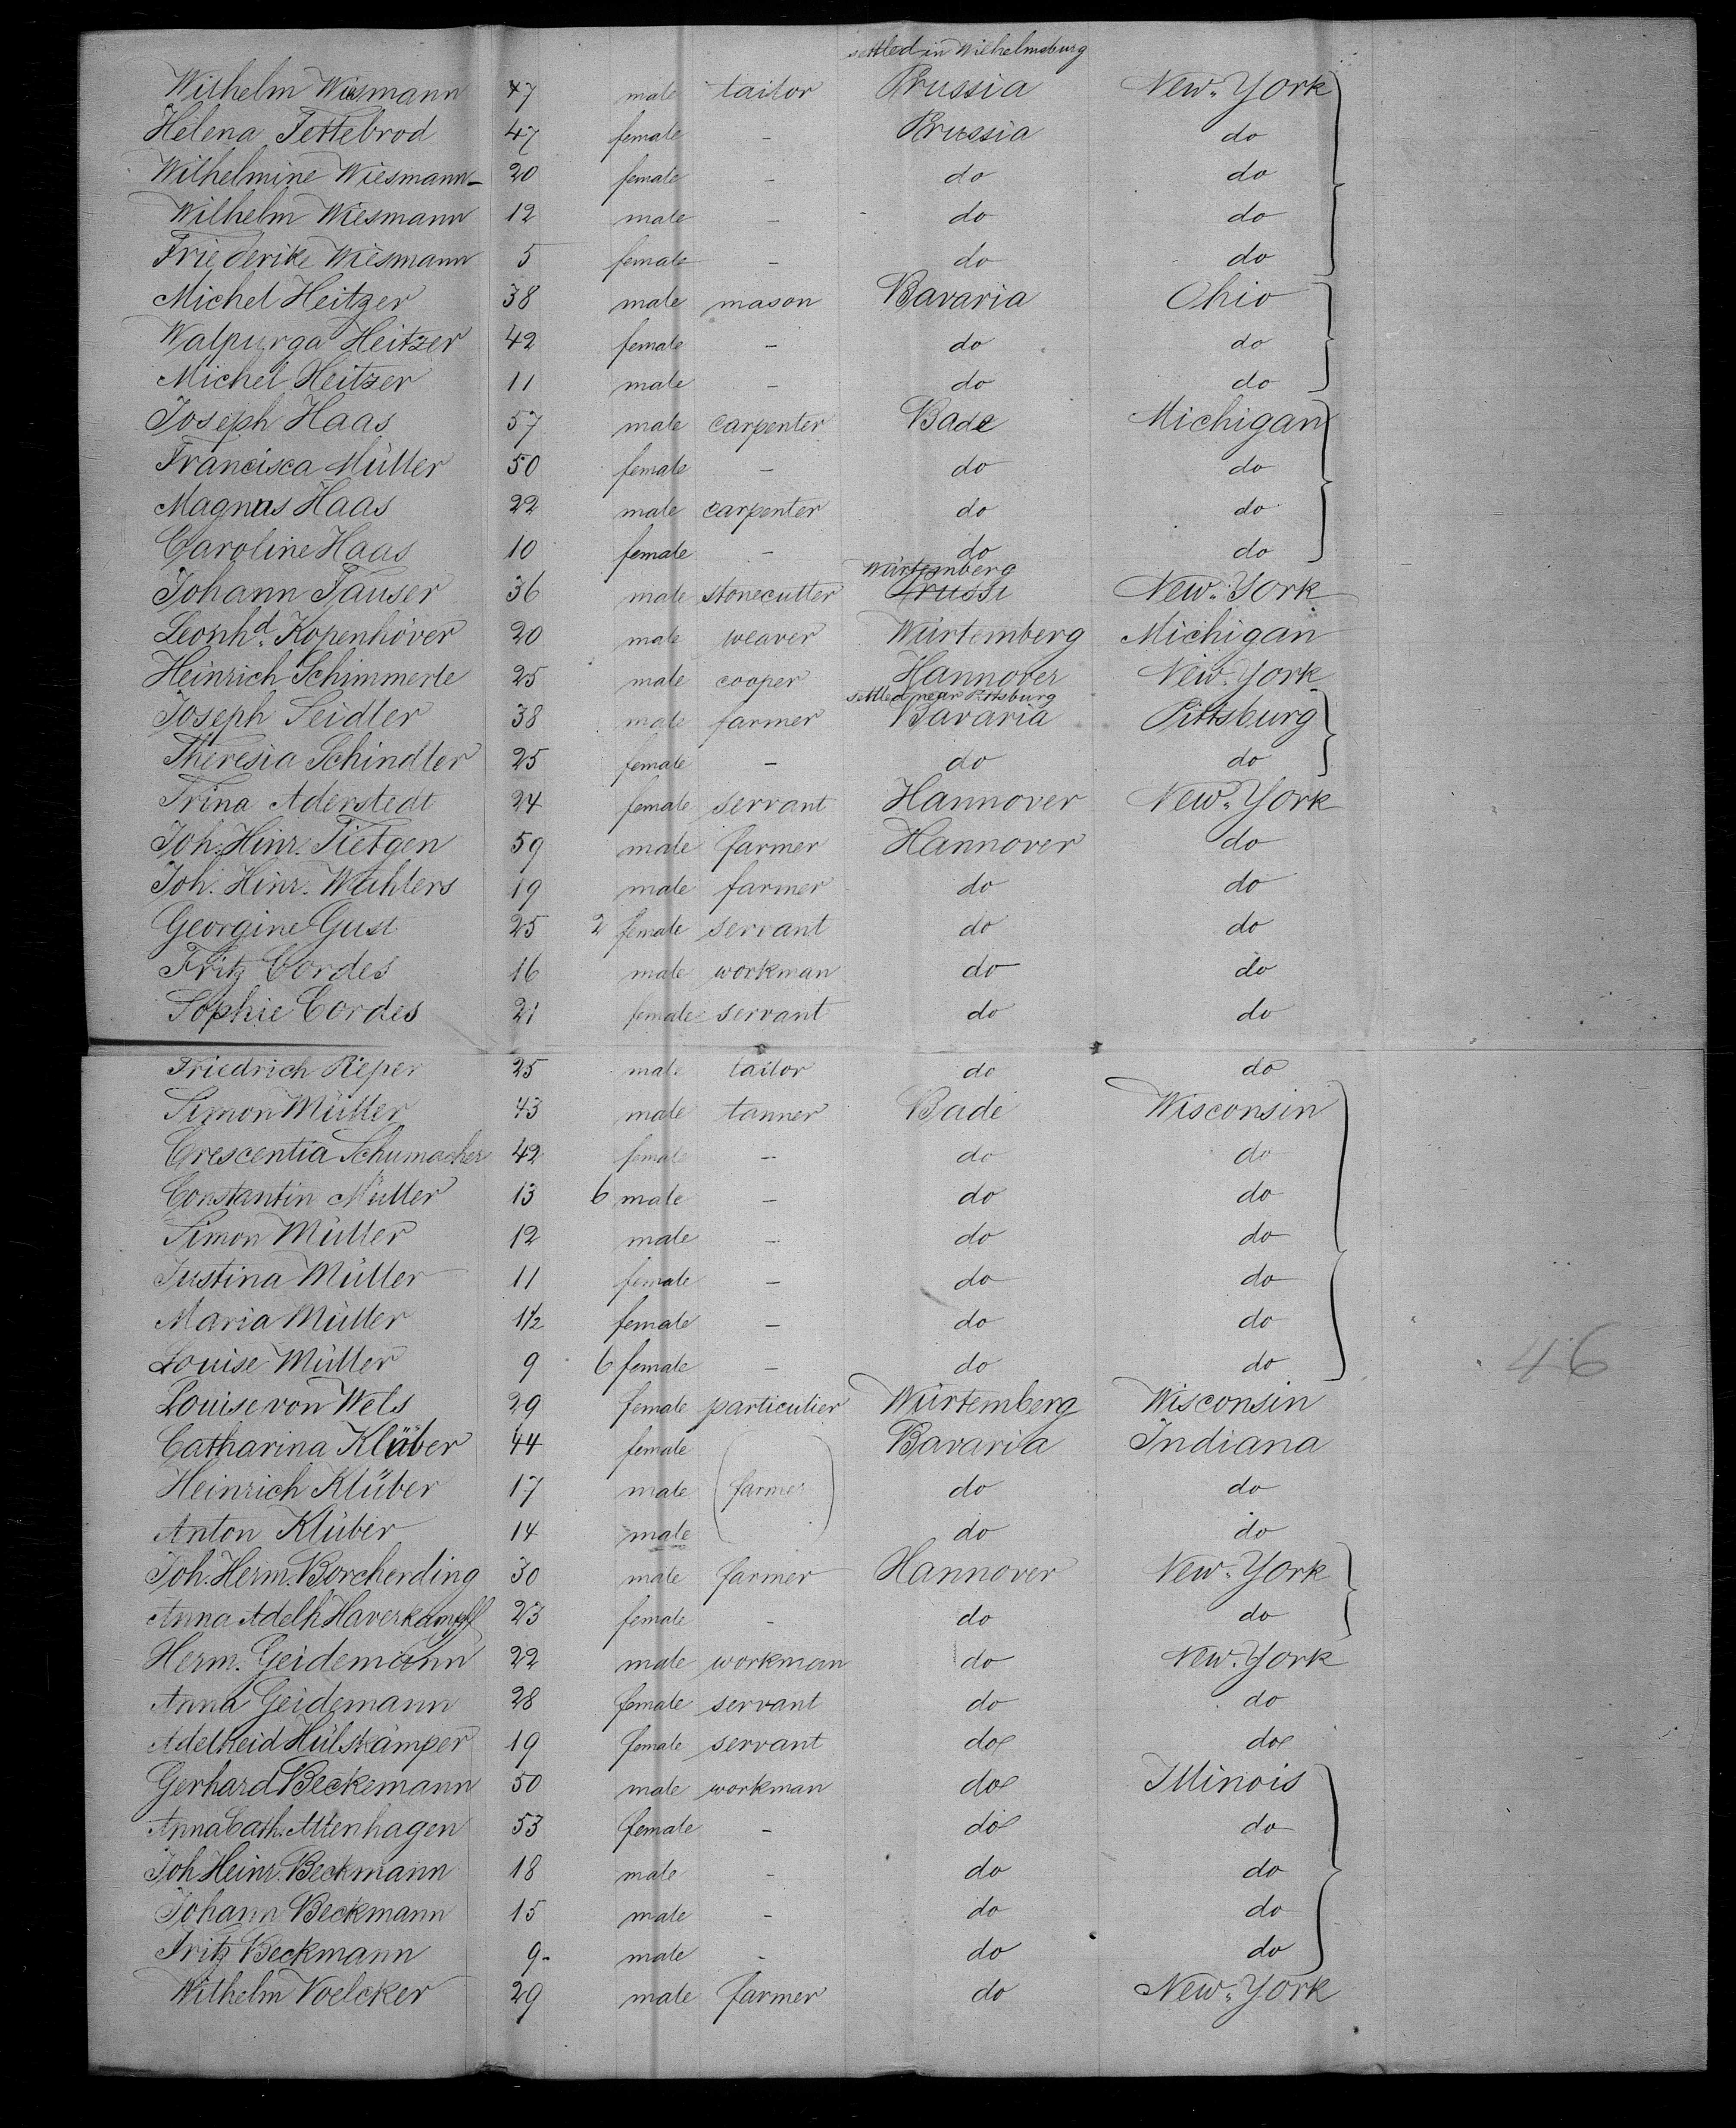 settled in Wilhelmsburg
Wilhelm Wiesmann 47 male tailor Prussia New-York
Helena Fettebrod 47 female - Prussia do
Wilhelmine Wiesmann 20 female - do do
Wilhelm Wiesmann 12 male - do do
Friederike Wiesmann 5 female - do do
Michel Heitzer 38 male mason Bavaria Ohio
Walpurga Heitzer 42 female - do do
Michel Heitzer 11 male - do do
Joseph Haas 57 male carpenter Bade Michigan
Francisca Müller 50 female - do do
Magnus Haas 22 male carpenter do do
Caroline Haas 10 female - do do
Würtemberg
Johann Fauser 36 male stonecutter Prussi New-York
Leonhd. Kopenhöver 20 male weaver Würtemberg Michigan
Heinrich Schimmerle 25 male cooper Hannover New-York
settled near Pittsburg
Joseph Seidler 38 male farmer Bavaria Pittsburg
Theresia Schindler 25 female - do do
Trina Aderstedt 24 female servant Hannover New-York
Joh. Hinr. Tietgen 59 male farmer Hannover do
Joh. Hinr. Wahlers 19 male farmer do do
Georgine Gust 25 2 female servant do do
Fritz Cordes 16 male workman do do
Sophie Cordes 21 female servant do do
Friedrich Pieper 25 male tailor do do
Simon Müller 43 male tanner Bade Wisconsin
Crescentia Schumacher 42 female - do do
Constantin Müller 13 6 male - do do
Simon Müller 12 male - do do
Justina Müller 11 female - do do
Maria Müller 1½ female - do do
Louise Müller 9 6 female - do do
46
Louise von Wels 29 female particulier Würtemberg Wisconsin
Catharina Klüber 44 female Bavaria Indiana
Heinrich Klüber 17 male farmer do do
Anton Klüber 14 male do do
Joh. Herm. Borcherding 30 male farmer Hannover New-York
Anna Adelh Haverkampff 23 female - do do
Herm. Geidemann 22 male workman do New-York
Anna Geidemann 28 female servant do do
Adelheid Hülskämper 19 female servant do do
Gerhard Beckemann 50 male workman do Illinois
Anna Cath. Altenhagen 53 female - do do
Joh Heinr. Beckmann 18 male - do do
Johann Beckmann 15 male - do do
Fritz Beckmann 9- male - do do
Wilhelm Voelcker 29 male farmer do New-York